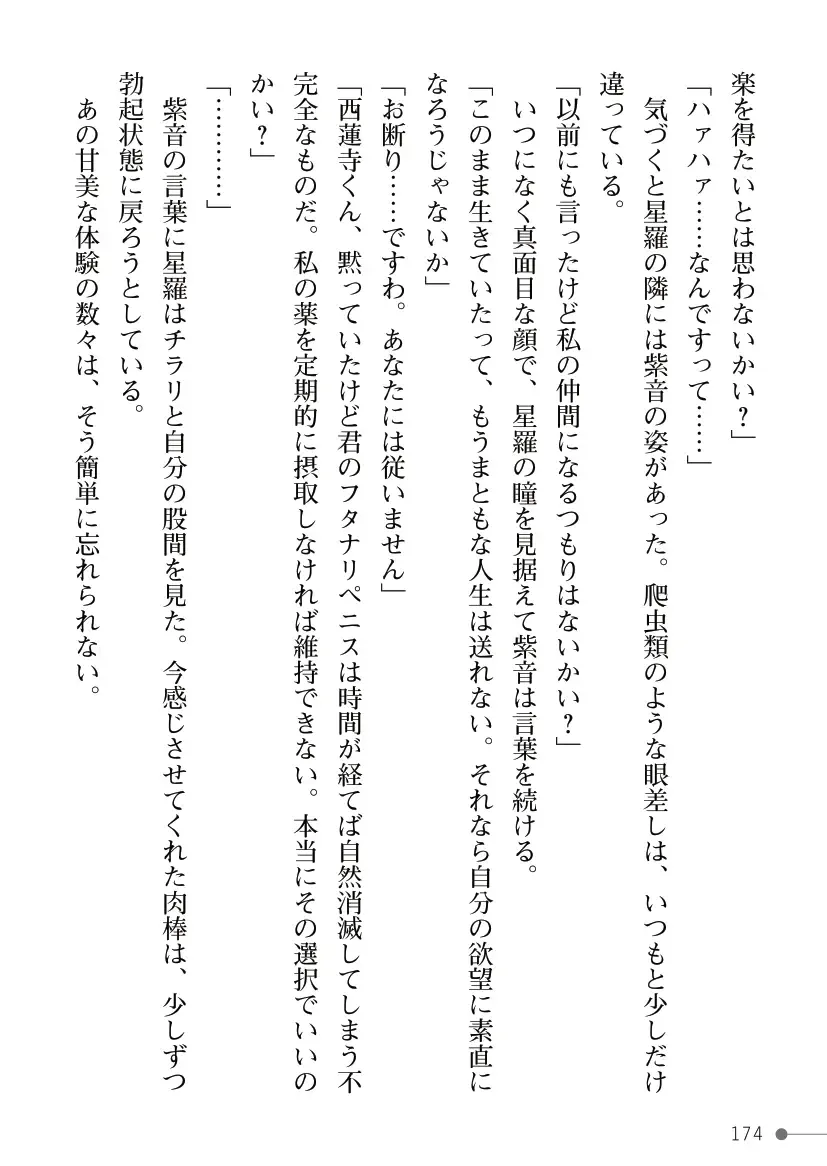 楽を得たいとは思わないかい？」
「ハァハァ……なんですって……」
　気づくと星羅の隣には紫音の姿があった。爬虫類のような眼差しは、いつもと少しだけ
違っている。
「以前にも言ったけど私の仲間になるつもりはないかい？」
　いつになく真面目な顔で、星羅の瞳を見据えて紫音は言葉を続ける。
「このまま生きていたって、もうまともな人生は送れない。それなら自分の欲望に素直に
なろうじゃないか」
「お断り……ですわ。あなたには従いません」
「西蓮寺くん、黙っていたけど君のフタナリペニスは時間が経てば自然消滅してしまう不
完全なものだ。私の薬を定期的に摂取しなければ維持できない。本当にその選択でいいの
かい？」
「…………」
　紫音の言葉に星羅はチラリと自分の股間を見た。今感じさせてくれた肉棒は、少しずつ
勃起状態に戻ろうとしている。
　あの甘美な体験の数々は、そう簡単に忘れられない。
174